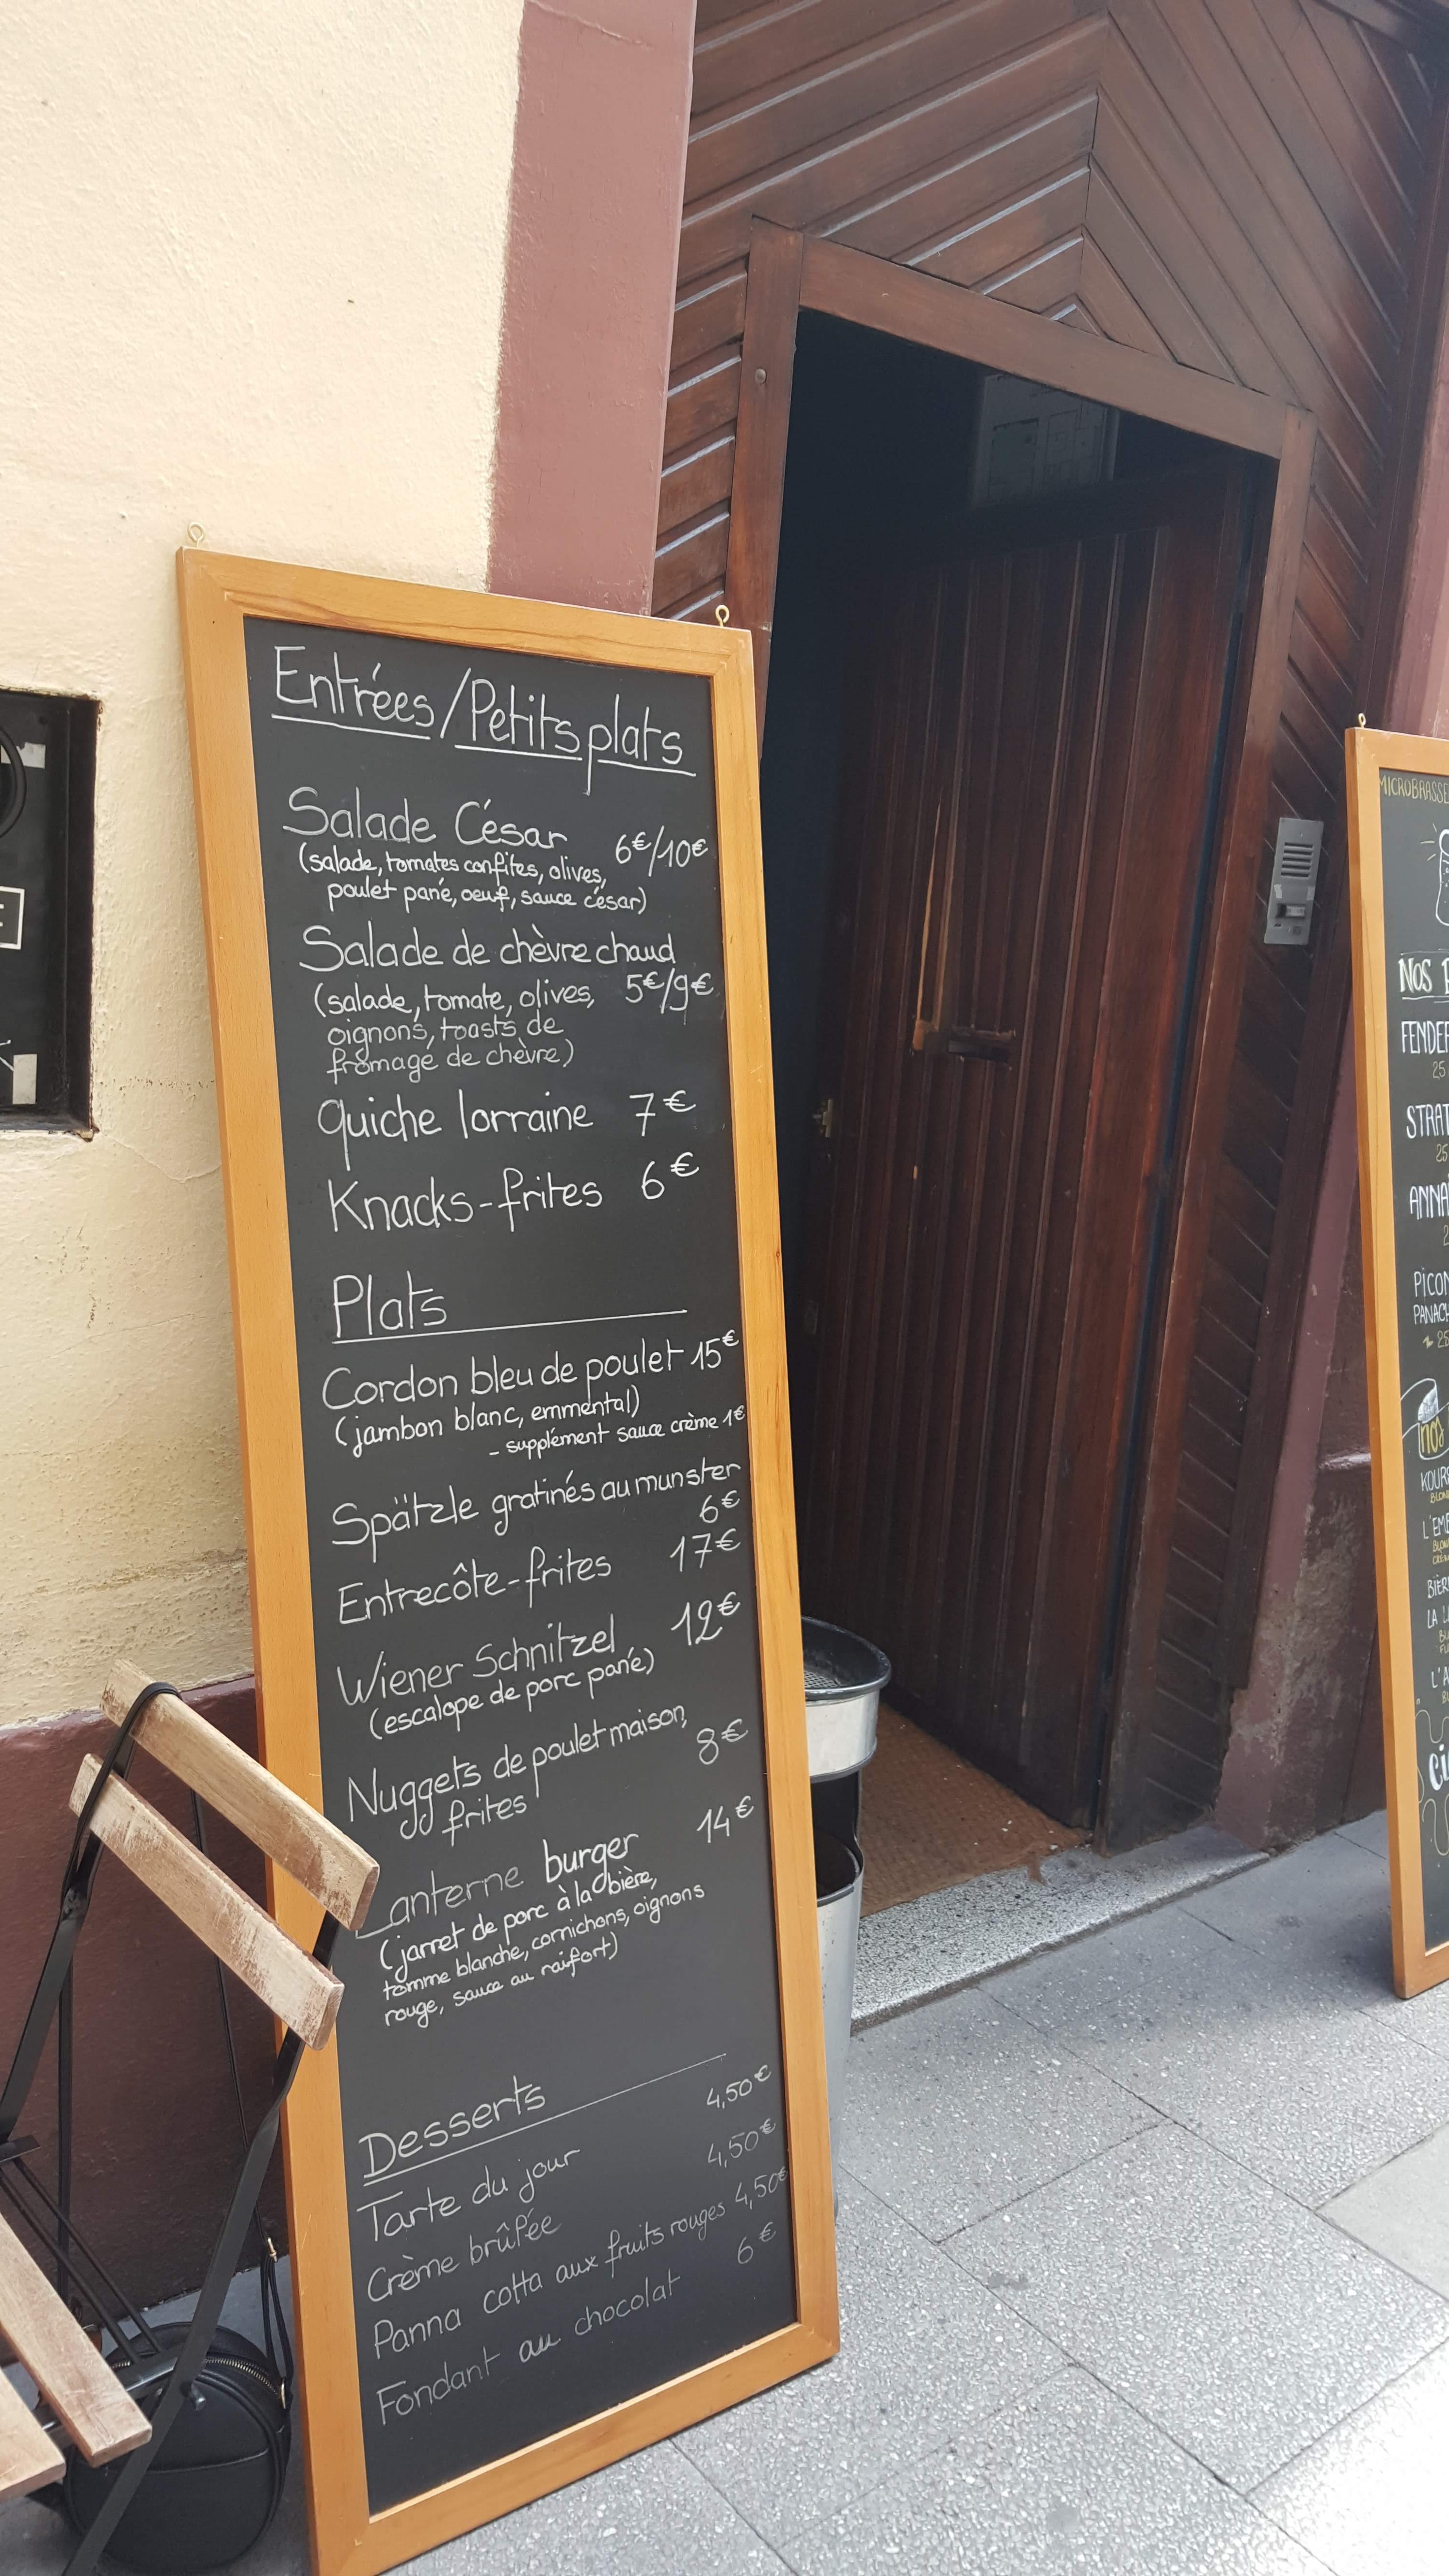 Entrées/Petits plats
Salade César 6€/10€
(salade, tomates confites, olives,
poulet pané, oeuf, sauce césar)
Salade de chèvre chaud
(salade, tomate, olives, 5€/9€
oignons, toasts de
fromage de chèvre)
Quiche lorraine 7€
Knacks-frites 6€
Plats
Cordon bleu de poulet 15€
(jambon blanc, emmental)
- supplément sauce crème 1€
Spätzle gratinés au munster
6€
Entrecôte-frites 17€
Wiener Schnitzel 12€
(escalope de porc pané)
Nuggets de poulet maison, 8€
frites
Lanterne burger 14€
(jarret de porc à la bière,
tomme blanche, cornichons, oignons
rouge, sauce au raifort)
Desserts
Tarte du jour 4,50€
Crème brûlée 4,50€
Panna cotta aux fruits rouges 4,50€
Fondant au chocolat 6€
NOS
25
25
PANACH
nos
LA